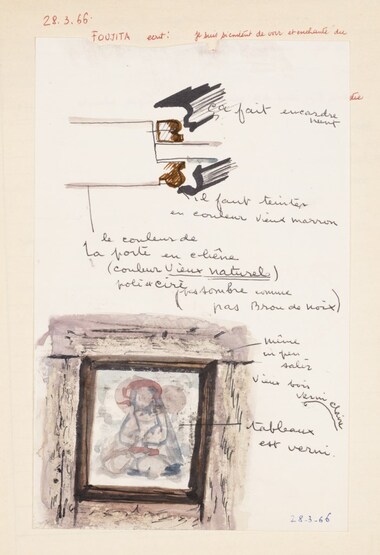 28.3.66
FOUJITA écrit: je suis prudent de voir et enchanté du
ça fait encadre
ment
il faut teinter
en couleur vieux marron
le couleur de
la porte en chêne
(couleur Vieux naturel)
poli et ciré
(pas sombre comme
pas Brou de noix)
même
un peu
salir
vieux bois
verni claire
tableaux
est verni.
28.3.66